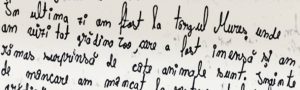 În ultima zi am fost la târgul Mureș unde
am vizi tat grădina zoo, care a fost imensă și am
rămas surprinsă de câte animale sunt. Înainte
de mâncare am mâncat la